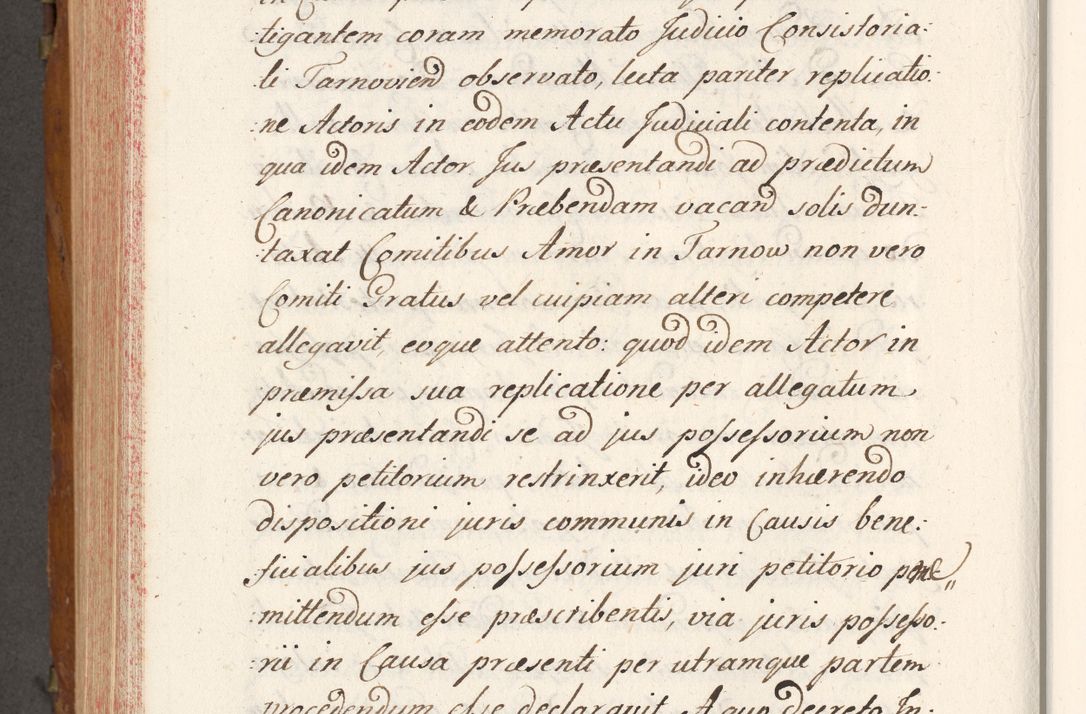 :tigantem coram memorato Judicio Consistoria:
:li Tarnovien observato, lecta pariter replicatio:
:ne Actoris in eodem Actu Judiciali contenta, in
qua idem Actor Jus præsentandi ad prædictum
Canonicatum & Præbendam vacan solis dun:
:taxat Comitibus Amor in Tarnow non vero
Comiti Gratus vel cuipiam alteri competere
allegavit, eoque attento: quod idem Actor in
præmissa sua replicatione per allegatum
jus præsentandi se ad jus possessorium non
vero petitorium restrinxerit, ideo inhærendo
dispositioni juris communis in Causis bene:
:ficialibus jus possessorium juri petitorio præ„
:mittendum esse præscribentis, via juris possesso:
:rii in Causa præsenti per utramque partem
procedendum esse declaravit. A quo decreto In: